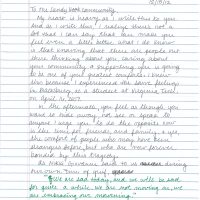 12/18/12
To the Sandy Hook community,
My heart is heavy as I write this to you
and as I write this, I realize there's not a
lot that I can say that can make you
feel even a little better. What I do know
is that knowing that there are people out
there thinking about you, caring about
your community & supporting you is going
to be one of your greatest comforts. I know
this because I experienced the same feelings
in Blacksburg as a student at Virginia Tech
on April 16, 2007.
In the aftermath, you feel as though you
want to hide away, not see or speak to
anyone. I urge you to do the opposite. Now
is the time for friends and family, & yes,
the comfort of people who may have been
strangers before but who are now forever
bonded by this tragedy.
As Nikki Giovanni said to us during
our own time of grief,
"We are sad today, and we will be sad
for quite a while. We are not moving on, we
are embracing our mourning."